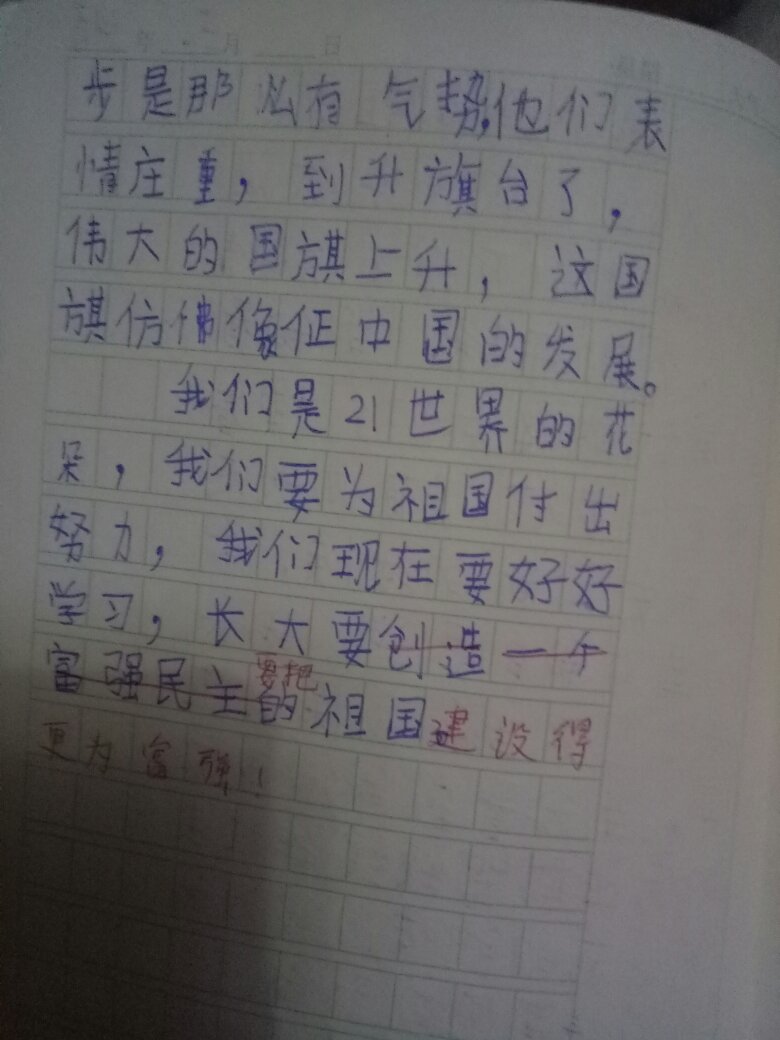 步是那么有气势,他们表
情庄重，到升旗台了，
伟大的国旗上升，这国
旗仿佛像征中国的发展。
我们是21世界的花
朵，我们要为祖国付出
努力，我们现在要好好
学习，长大要创造一个
要把
富强民主的祖国建设得
更为富强！